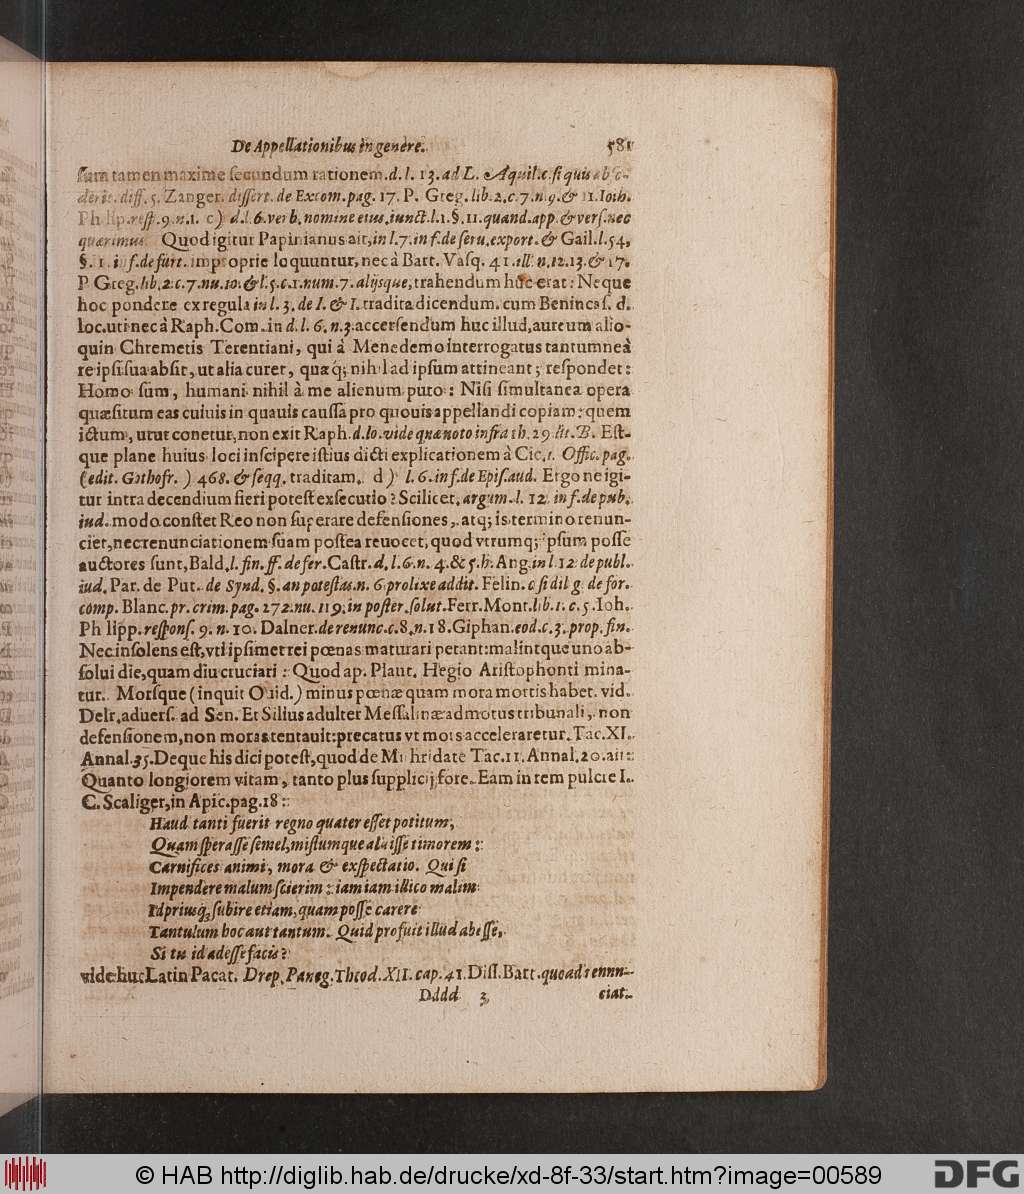 De Appellationibus in genere. 581
ſam tamen maxime ſecundum rationem. d. l. 13. ad L. Aquil. c. ſi quis
diff. 5. Zanger. diſſert. de Excom. pag. 17. P. Greg. lib. 2. c. 7. n. 9. & 11. Ioth.
Philip. reſp. 9. n. 1. c) d. l. 6. verb. nomine eius, iunct. l. 1. §. 11. quand. app. & verſ. nec
quærimus Quod igitur Papinianus ait, in l. 7. in f. de ſeru. export. & Gail. l. 54,
§. 1. in f. de furt. improprie loquuntur, nec à Bart. Vaſq. 41. ill. n. 12. 13. & 17.
P Greg. lib. 2. c. 7. nu. 10. & l. 5. c. 1. num. 7. alijsque, trahendum huc erat: Neque
hoc pondere ex regula in l. 3. de I. & I. tradita dicendum. cum Benincaſ. d.
loc. uti nec à Raph. Com. in d. l. 6. n. 3. accerſendum huc illud, aureum alio-
quin Chremetis Terentiani, qui à Menedemo interrogatus tantumne à
re ipſi ſua abſit, ut alia curet, quæq; nihil ad ipſum attineant; reſpondet:
Homo ſum, humani nihil à me alienum puto: Niſi ſimultanea opera
quæſitum eas cuiuis in quauis cauſſa pro quouis appellandi copiam: quem
ictum, utut conetur, non exit Raph. d. lo. vide quæ noto infra th. 29 lit. B. Eſt-
que plane huius loci inſcipere iſtius dicti explicationem à Cic. 1. Offic. pag.
(edit. Gothofr. ) 468. & ſeqq. traditam. d) l. 6. in f. de Epiſ. aud. Ergo ne igi-
tur intra decendium fieri poteſt exſecutio? Scilicet, argum. l. 12. in f. de pub.
iud. modo conſtet Reo non ſuperare defenſiones, atq; is termino renun-
ciet, nec renunciationem ſuam poſtea reuocet, quod vtrumq; ipſum poſſe
auctores ſunt, Bald. l. fin. ff. de fer. Caſtr. d. l. 6. n. 4. & 5. h. Ang. in l. 12 de publ.
iud. Par. de Put. de Synd. §. an poteſtas. n. 6 prolixe addit. Felin. c ſi dil g. de for.
comp. Blanc. pr. crim. pag. 272. nu. 119. in poſter. ſolut. Ferr. Mont. lib. 1. c. 5. Ioh.
Philipp. reſponſ. 9. n. 10. Dalner. de renunc. c. 8. n. 18. Giphan. eod. c. 3. prop. fin.
Nec inſolens eſt, vti ipſimet rei pœnas maturari petant: malintque uno ab-
ſolui die, quam diu cruciari: Quod ap. Plaut. Hegio Ariſtophonti mina-
tur. Morſque (inquit Ouid.) minus pœnæ quam mora mortis habet. vid.
Delr. aduerſ. ad Sen. Et Silius adulter Meſſalinæ admotus tribunali, non
defenſionem, non moras tentauit: precatus vt mors acceleraretur. Tac. XI.
Annal. 35. Deque his dici poteſt, quod de Mithridate Tac. 11. Annal. 20. ait:
Quanto longiorem vitam, tanto plus ſupplicij fore. Eam in rem pulcre I.
C. Scaliger, in Apic. pag. 18:
Haud tanti fuerit regno quater eſſet potitum,
Quam ſperaſſe ſemel, miſtumque aluiſſe timorem:
Carnifices animi, mora & exſpectatio. Qui ſi
Impendere malum ſcierim: iam iam illico malim
Id priusq; ſubire etiam, quam poſſe carere
Tantulum hoc aut tantum. Quid profuit illud abeſſe,
Si tu id adeſſe facis?
vide huc Latin Pacat. Drep. Paneg. Theod. XII. cap. 41. Diſſ. Bart. quoad renun-
Dddd 3 ciat.
© HAB http://diglib.hab.de/drucke/xd-8f-33/start.htm?image=00589
DFG